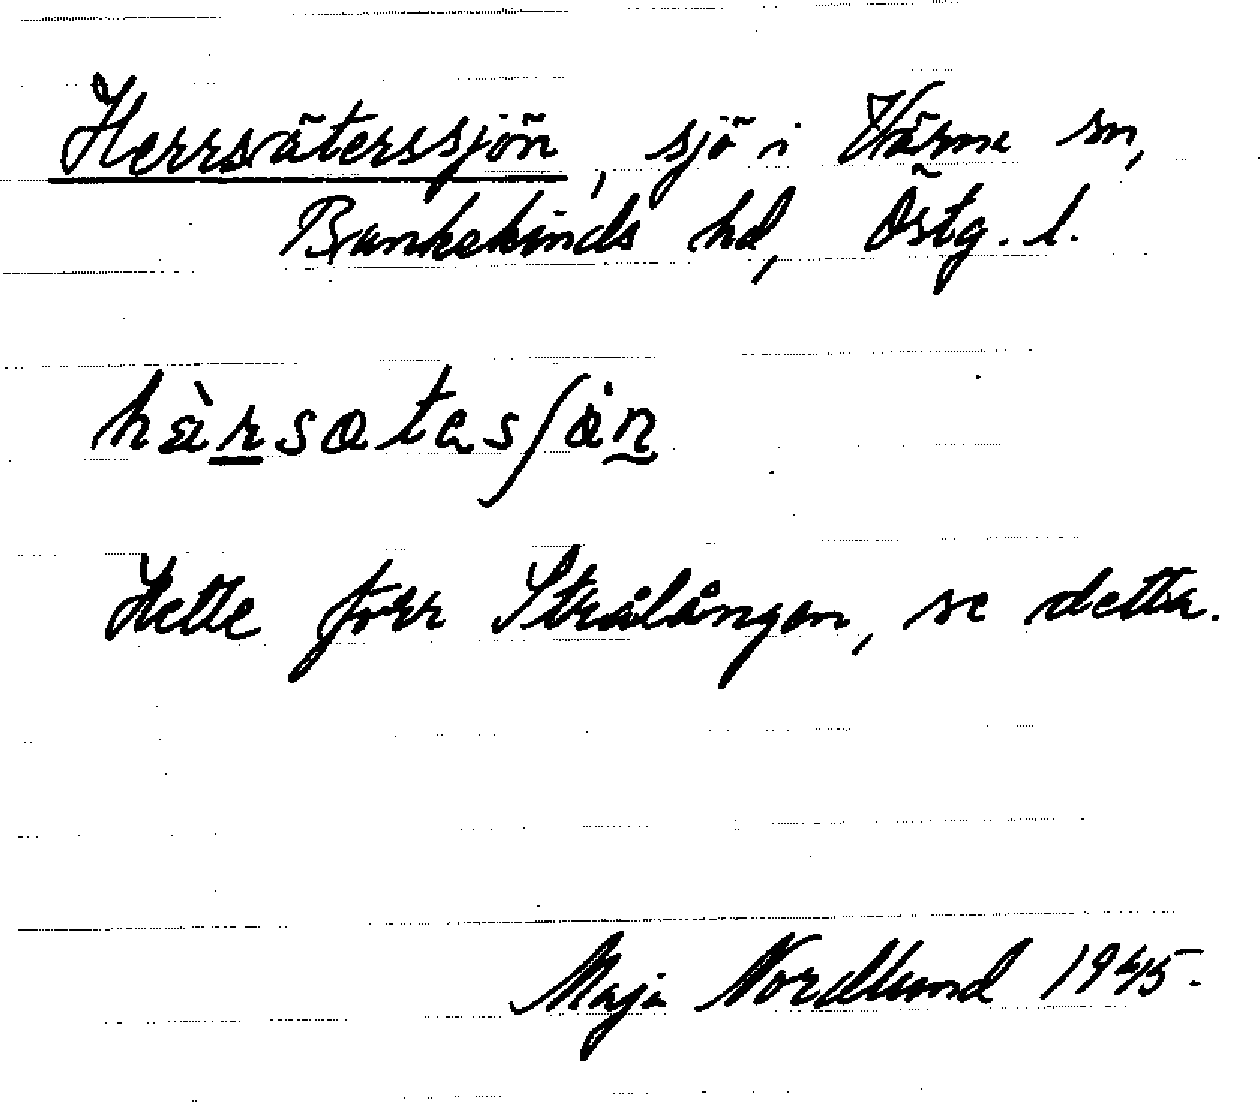 Herrsätterssjön, sjö i Värna sn,
Bankekinds hd, Östg. l.
Hette förr Strålången, se detta.
Maja Nordlund 1945.